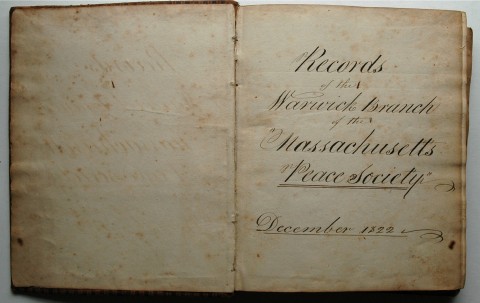 Records
of the
Warwick Branch
of the
"Massachusetts
"Peace Society"
December 1822